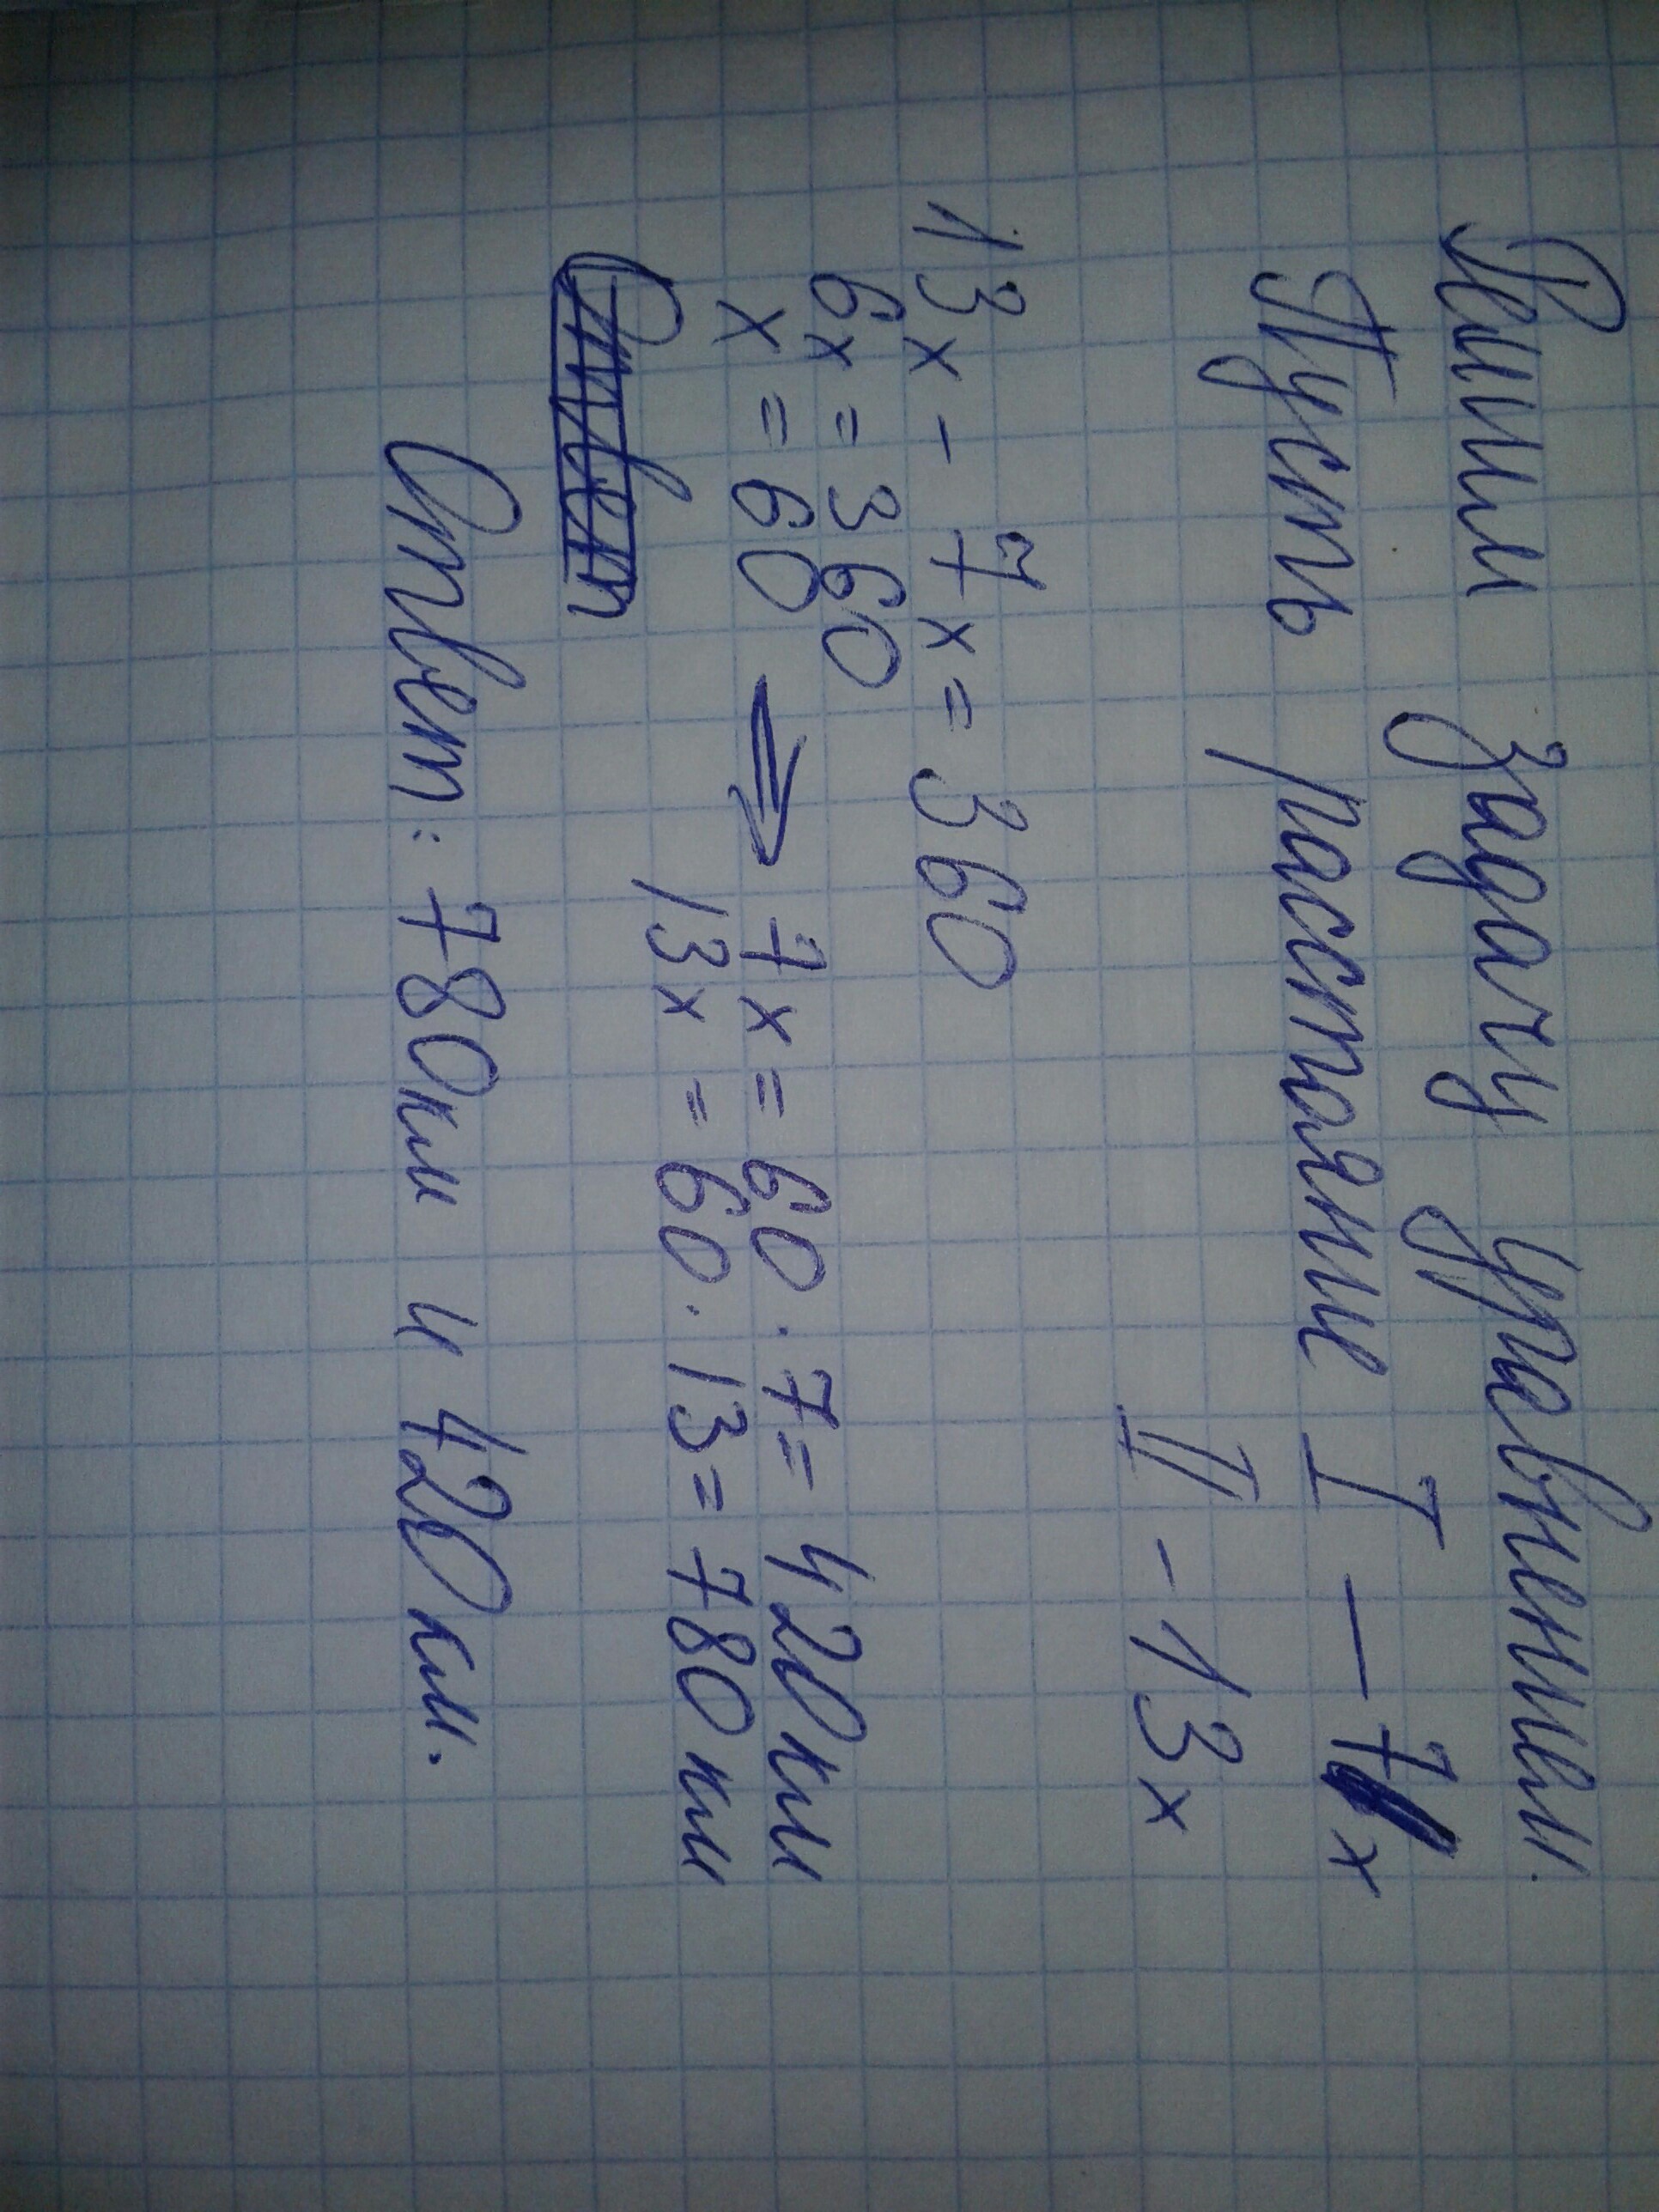 Решим задачу уравнением.
Пусть расстояние I — 7x
II - 13x
13x - 7x = 360
6x = 360
x = 60 ⇒ 7x = 60 · 7 = 420км
13x = 60 · 13 = 780км
Ответ: 780км и 420км.